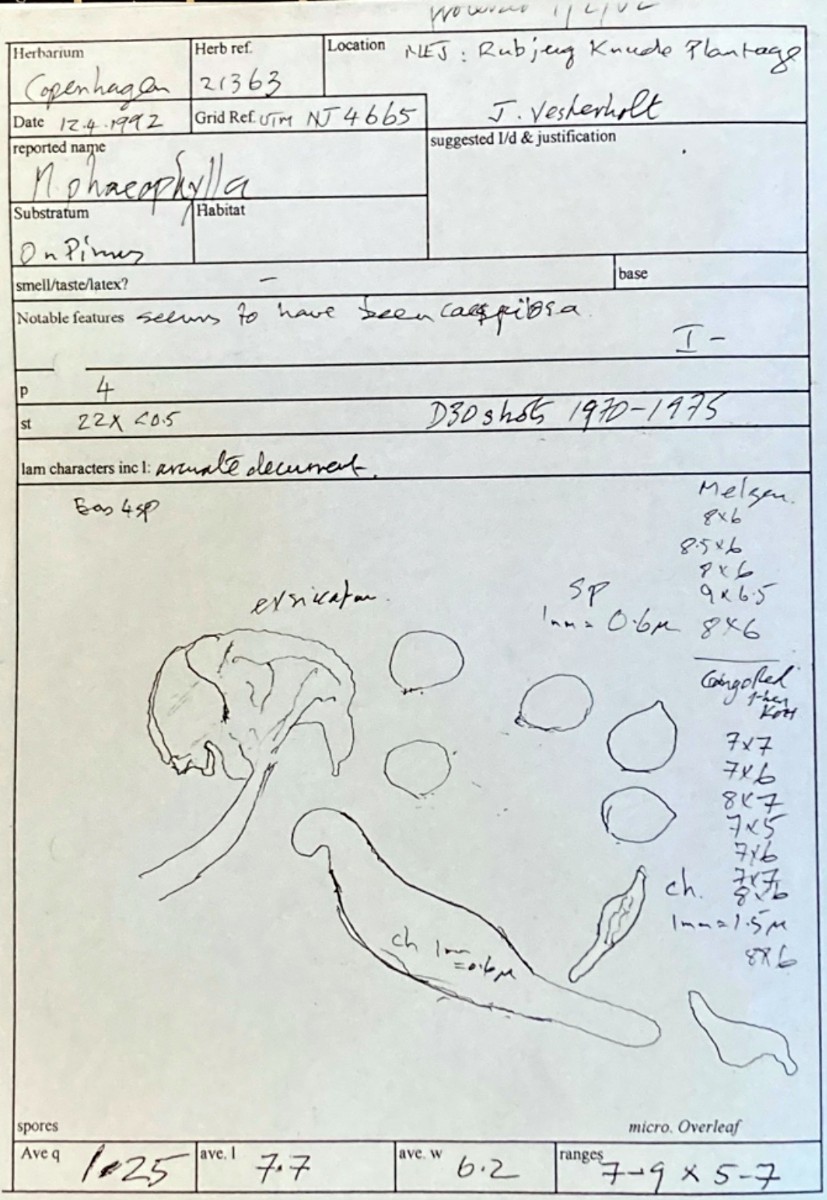 1/2/02
Herbarium Herb ref. Location NEJ: Rubjerg Knude Plantage
Copenhagen 21363
Date 12.4.1992 Grid Ref. UTM NJ 4665 J. Vesterholt
reported name suggested I/d & justification
M. phaeophylla
Substratum Habitat
On Pinus
smell/taste/latex? – base
Notable features seems to have been caespitosa
I –
p 4
st 22 x <0.5 D30 shots 1970-1975
lam characters inc l: arcuate decurrent.
Bas 4sp
Melzer.
8x6
8.5x6
8x6
exsiccatum. sp 9x6.5
1mm = 0.6µ 8x6
Congo Red
then
KOH
7x7
7x6
8x7
7x5
7x6
7x7
ch. 8x6
1mm = 1.5µ
8x6
ch 1mm
=0.6µ
spores micro. Overleaf
Ave q 1.25 ave. l 7.7 ave. w 6.2 ranges 7-9 x 5-7